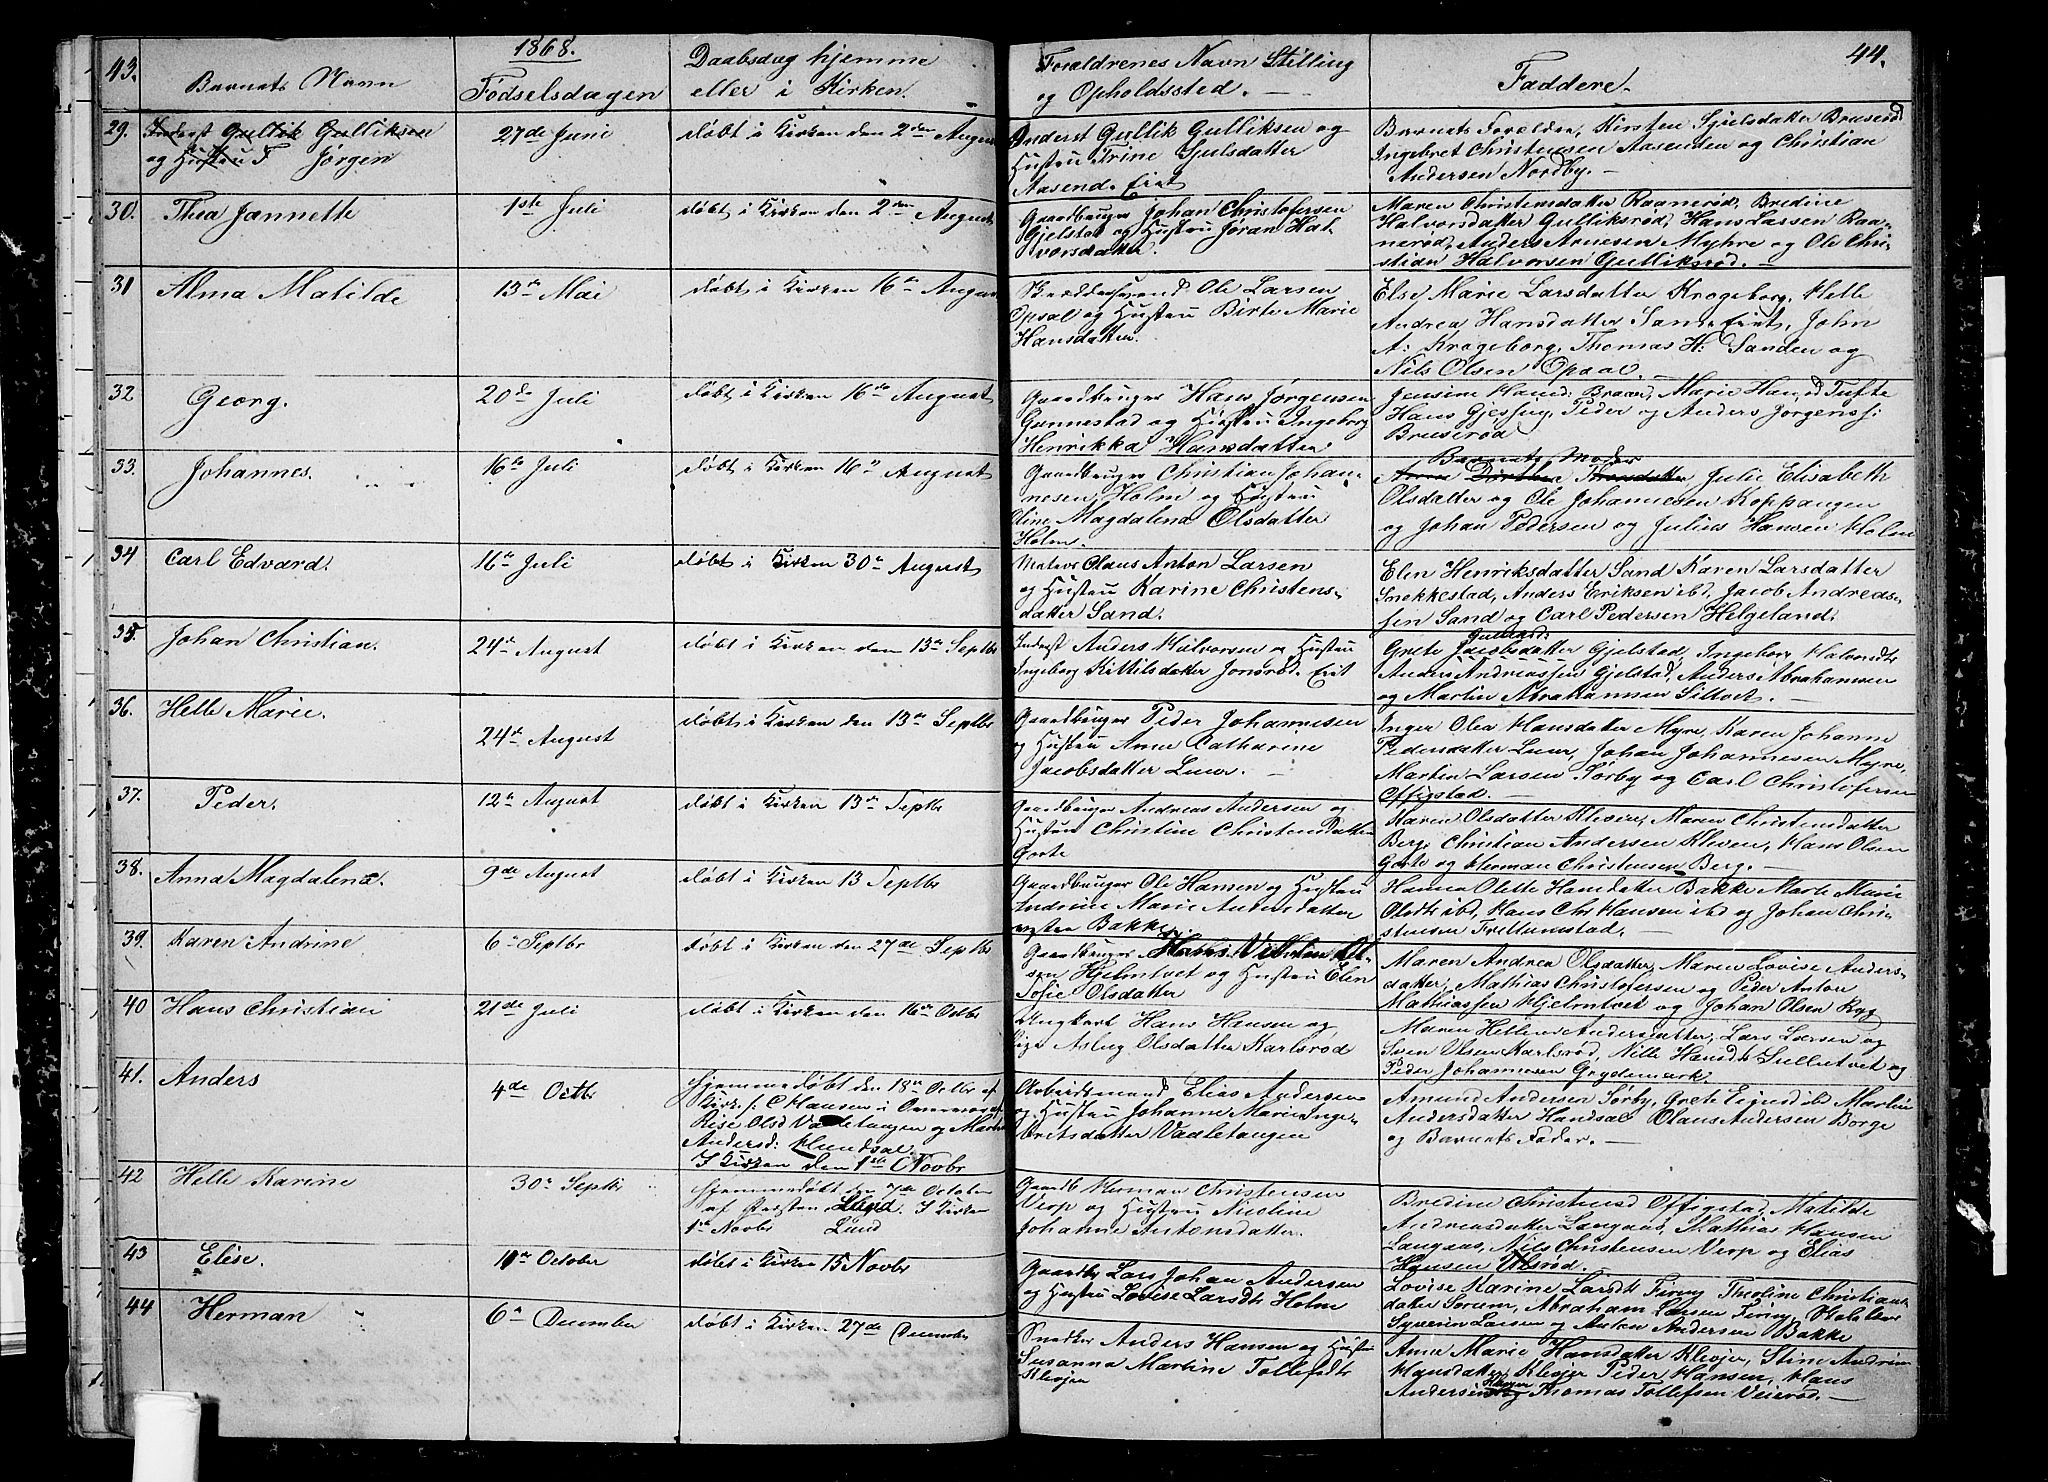 43.
1868.
Barnets Navn
Fødselsdagen
Daabsdag hjemme
eller i Kirken.
Forældrenes Navn Stilling
og Opholdssted.
Faddere.
44.
29. Inderst Gullik Gulliksen
og Hustru T Jørgen
27de Juni
døbt i Kirken den 2den August
Inderst Gullik Gulliksen og
Hustru Trine Gjulsdatter
Aasend. Eiet
Barnets Forældre, Kirsten Gjulsdatter Bruserød
Ingebret Christensen Aasenden og Christian
Andersen Nordby.
30. Thea Jannette
1ste Juli
døbt i Kirken den 2den August
Gaardbruger Johan Christofersen
Gjelstad og Hustru Jøran Hal-
vorsdatter.
Maren Christensdatter Raanerød, Bredine
Halvorsdatter Gulliksrød, Hans Larsen Raa-
nerød, Anders Arnesen Myhre og Ole Chri-
stian Halvorsen Gulliksrød.
31 Alma Matilde
13de Mai
døbt i Kirken 16de August
Ole Larsen
Opsal og Hustru Birte Marie
Hansdatter.
Else Marie Larsdatter Krogeborg, Helle
Andrea Hansdatter Sand. Eiet, John
A: Krogeborg, Thomas H: Sanden og
Nils Olsen Opsal.
32 Georg.
20de Juli
døbt i Kirken 16de August
Gaardbruger Hans Jørgensen
Gunnestad og Hustru Ingeborg
Henrikka Hansdatter.
Jensine Hansd: Braar, Marie Hansd Tufte
Hans Gjessing, Peder og Anders Jørgens s:
Bruserød
33. Johannes.
16de Juli
døbt i Kirken 16" August
Gaardbruger Christian Johan-
nesen Holm og Hustru
Oline Magdalena Olsdatter
Holm.
Barnets Moder
Anne Dorthea Thorsdatter Julie Elisabeth
Olsdatter og Ole Johannesen Koppangen
og Johan Pedersen og Julius Hansen Holm
34 Carl Edvard.
16de Juli
døbt i Kirken 30te August
Matros Olaus Anton Larsen
og Hustru Karine Christens-
datter Sand.
Elen Henriksdatter Sand Karen Larsdatter
Snekkestad, Anders Eriksen ibd, Jacob Andreas-
sen Sand og Carl Pedersen Helgeland.
35. Johan Christian.
24de August
døbt i Kirken den 13de Septbr
Inderst Anders Halvorsen og Hustru
Ingeborg Kittilsdatter Jonsrød. Eiet
Grete Jacobsdatter Gjelstad, Ingeborg Halvorsdtr
Anders Andreassen Gjelstad, Anders Abrahamsen
og Martin Abrahamsen Siltvet.
36. Helle Marie.
24de August
døbt i Kirken den 13de Septbr
Gaardbruger Peder Johannesen
og Hustru Anne Catharine
Jacobsdatter Luur.
Inger Olea Hansdatter Myre, Karen Johanne
Pedersdatter Luur, Johan Johannesen Myre,
Martin Larsen Sørby og Carl Christofersen
Effigstad.
37. Peder.
12te August
døbt i Kirken 13de Septbr
Gaardbruger Andreas Andersen og
Hustru Christine Christensdatter
Gorte
Maren Olsdatter Kleven, Maren Christensdatter
Berg, Christian Andersen Kleven, Hans Olsen
Gorte og Herman Christensen Berg.
38. Anna Magdalena.
9de August
døbt i Kirken 13 Septbr
Gaardbruger Ole Hansen og Hustru
Andrine Marie Andersdatter
vestre Bakke
Hanna Olette Hansdatter Bakke Marte Marie
Olsdtr ibd, Hans Chr Hansen ibd og Johan Chri-
stensen Freltumstad.
39. Karen Andrine
6te Septbr
døbt i Kirken den 27de Septbr
Gaardbruger Hans Villum Ol-
sen Hjelmtvet og Hustru Elen
Sofie Olsdatter
Maren Andrea Olsdatter, Maren Lovise Anders-
datter, Mathias Christofersen og Peder Anton
Mathiassen Hjelmtvet og Johan Olsen Ryg
40 Hans Christian
21de Juli
døbt i Kirken den 16de Octbr
Ungkarl Hans Hansen og
Pige Aslug Olsdatter Karlsrød
Maren Helene Andersdatter, Lars Larsen og
Sven Olsen Karlsrød, Nille Hansdtr Sulletvet og
Peder Johannesen Grydemark.
41. Anders
4de Octbr
hjemmedøbt den 18de Octbr af
Kirks: C Hansen i Overværelse af
Kise Olsd Vadletangen og Marte
Andersd: Hundsal.
I Kirken den 1ste Novbr
Arbeidsmand Elias Andersen
og Hustru Johanne Marie Inge-
bretsdatter Vaaletangen
Amund Andersen Sørby, Grete Eigned ibd Martine
Andersdatter Handsal Olaus Andersen Borge
og Barnets Fader.
42 Helle Karine
30te Septbr
hjemmedøbt den 7de October
af Præsten Lund. I Kirken
1ste Novbr Lund
Gaardb Herman Christensen
Verp og Hustru Nicoline
Johanne Antonsdatter.
Bredine Christensd Effigstad, Matilde
Andreasdatter Langaas, Mathias Hansen
Langaas, Nils Christensen Verp og Elias
Hansen Ulsrød.
43 Elise.
11te October
døbt i Kirken 15 Novbr
Gaardbr Lars Johan Andersen
og Hustru Lovise Larsdtr Holm
Lovise Karine Larsdtr Firing Theoline Christians-
datter Sørum, Abraham Larsen Firing,
Syverin Larsen og Anton Andersen Bakke
44 Herman
6te December
døbt i Kirken 27de December
Snedker Anders Hansen og Hustru
Susanna Martine Tollefsdtr
Klevjer
Anne Marie Hansdatter Klevjer, Stine Andrine
Hansdatter Klevjer Peder Hansen, Hans
Andersen Klevjer Thomas Tollefsen Veierød.